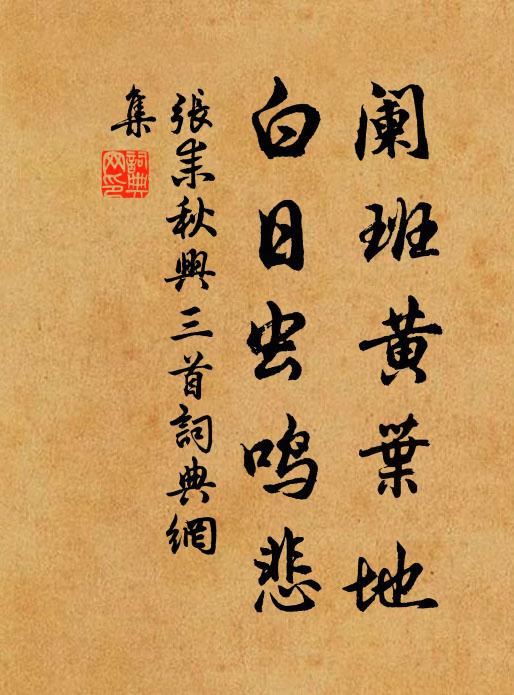 阑班黄葉地
白日虫鸣悲
張耒秋興三首詞典網
集
詞典
网印